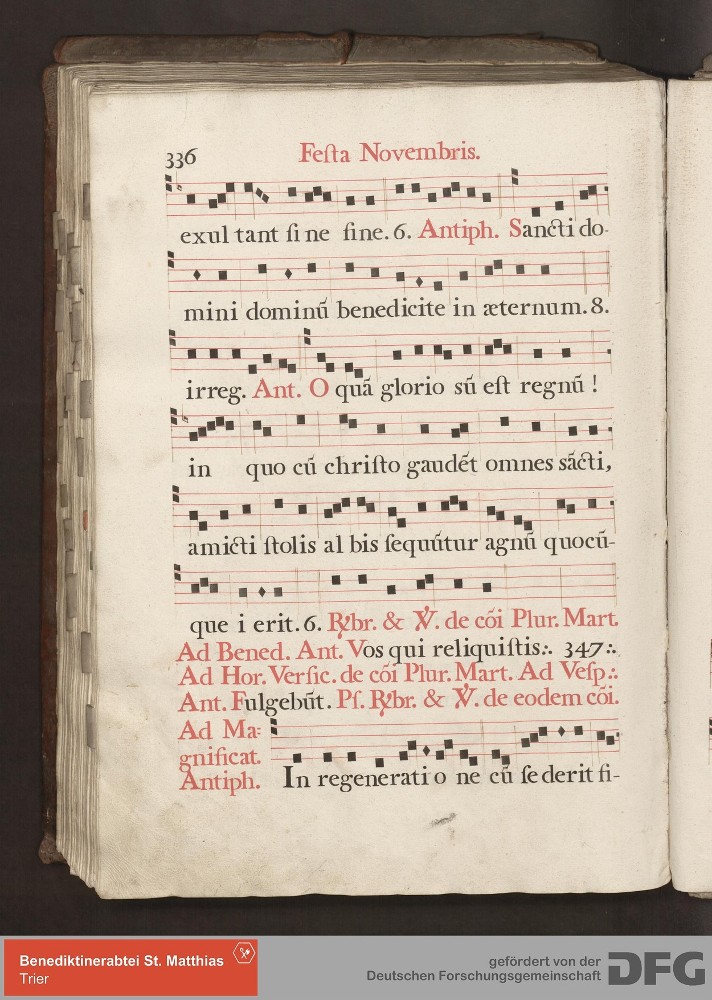 336 Feſta Novembris.
exul tant ſi ne ſine. 6. Antiph. Sancti do-
mini dominũ benedicite in æternum. 8.
irreg. Ant. O quã glorio sũ eſt regnũ !
in quo cũ chriſto gaudẽt omnes sãcti,
amicti ſtolis al bis ſequũtur agnũ quocũ-
que i erit. 6. R̸br. & V̸. de cõi Plur. Mart.
Ad Bened. Ant. Vos qui reliquiſtis.:. 347.:.
Ad Hor. Verſic. de cõi Plur. Mart. Ad Veſp.:.
Ant. Fulgebũt. Pſ. R̸br. & V̸. de eodem cõi.
Ad Ma:
gnificat.
Antiph. In regenerati o ne cũ ſe derit fi-
Benediktinerabtei St. Matthias
Trier
gefördert von der
Deutschen Forschungsgemeinschaft
DFG